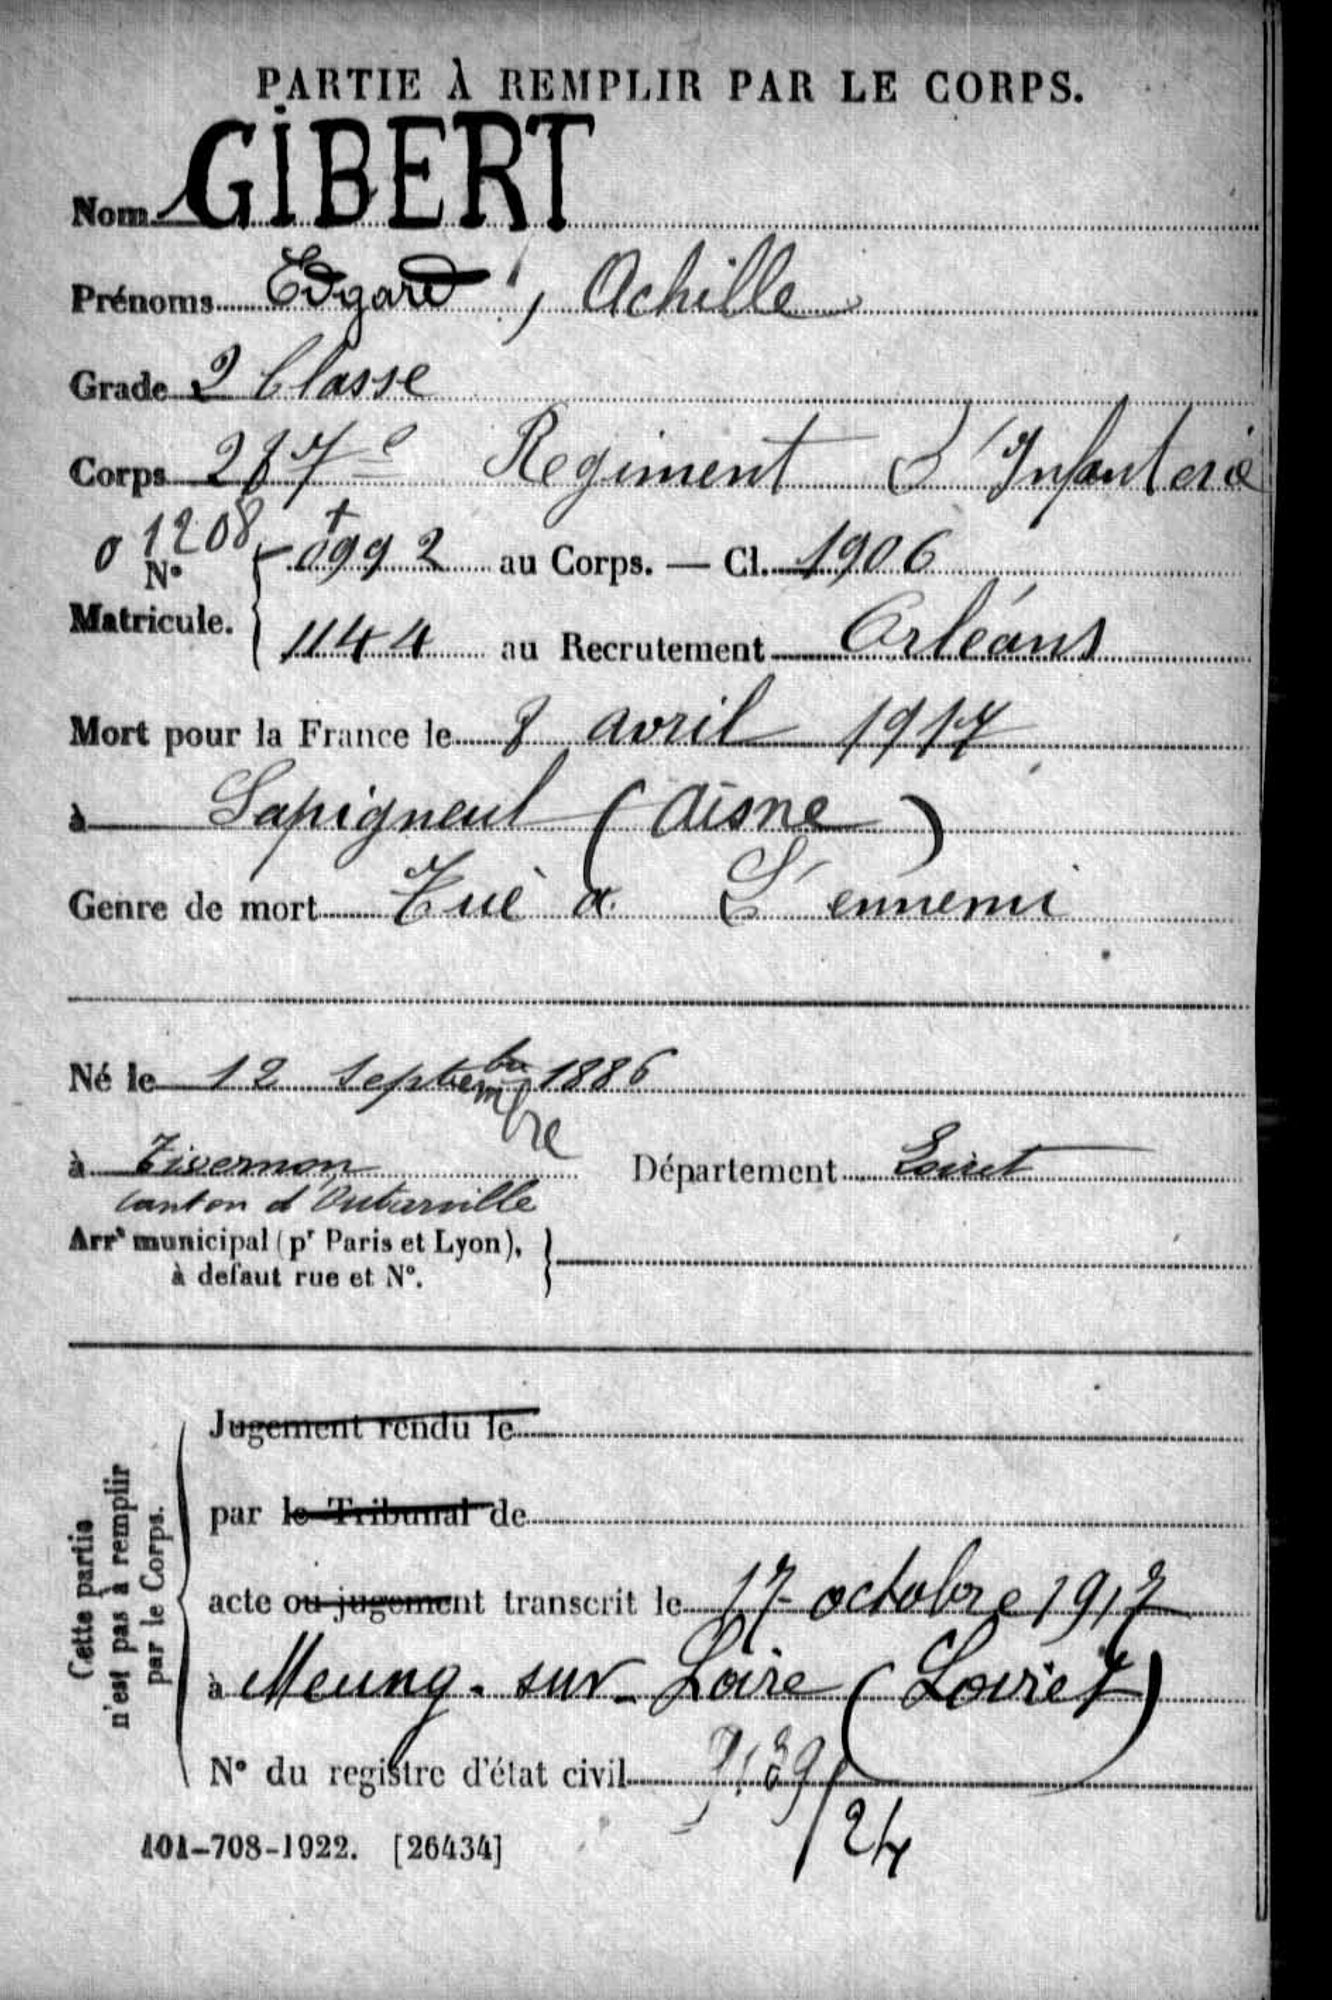 PARTIE À REMPLIR PAR LE CORPS.
Nom GIBERT
Prénoms Edgard, Achille
Grade 2 Classe
Corps 287e Regiment d'Infanterie
o 1208
N° Matricule. 0992 au Corps. — Cl. 1906
1144 au Recrutement Orléans
Mort pour la France le 8 avril 1917
à Sapigneul (Aisne)
Genre de mort Tué a L'ennemi
Né le 12 Septembre 1886
à Tivernon Département Loiret
canton d'Outarville
Arrt municipal (pr Paris et Lyon),
à defaut rue et N°.
Cette partie
n'est pas à remplir
par le Corps.
Jugement rendu le
par le Tribunal de
acte ou jugement transcrit le 17 octobre 1917
à Meung-sur-Loire (Loiret)
N° du registre d'état civil
/24
101-708-1922. [26434]